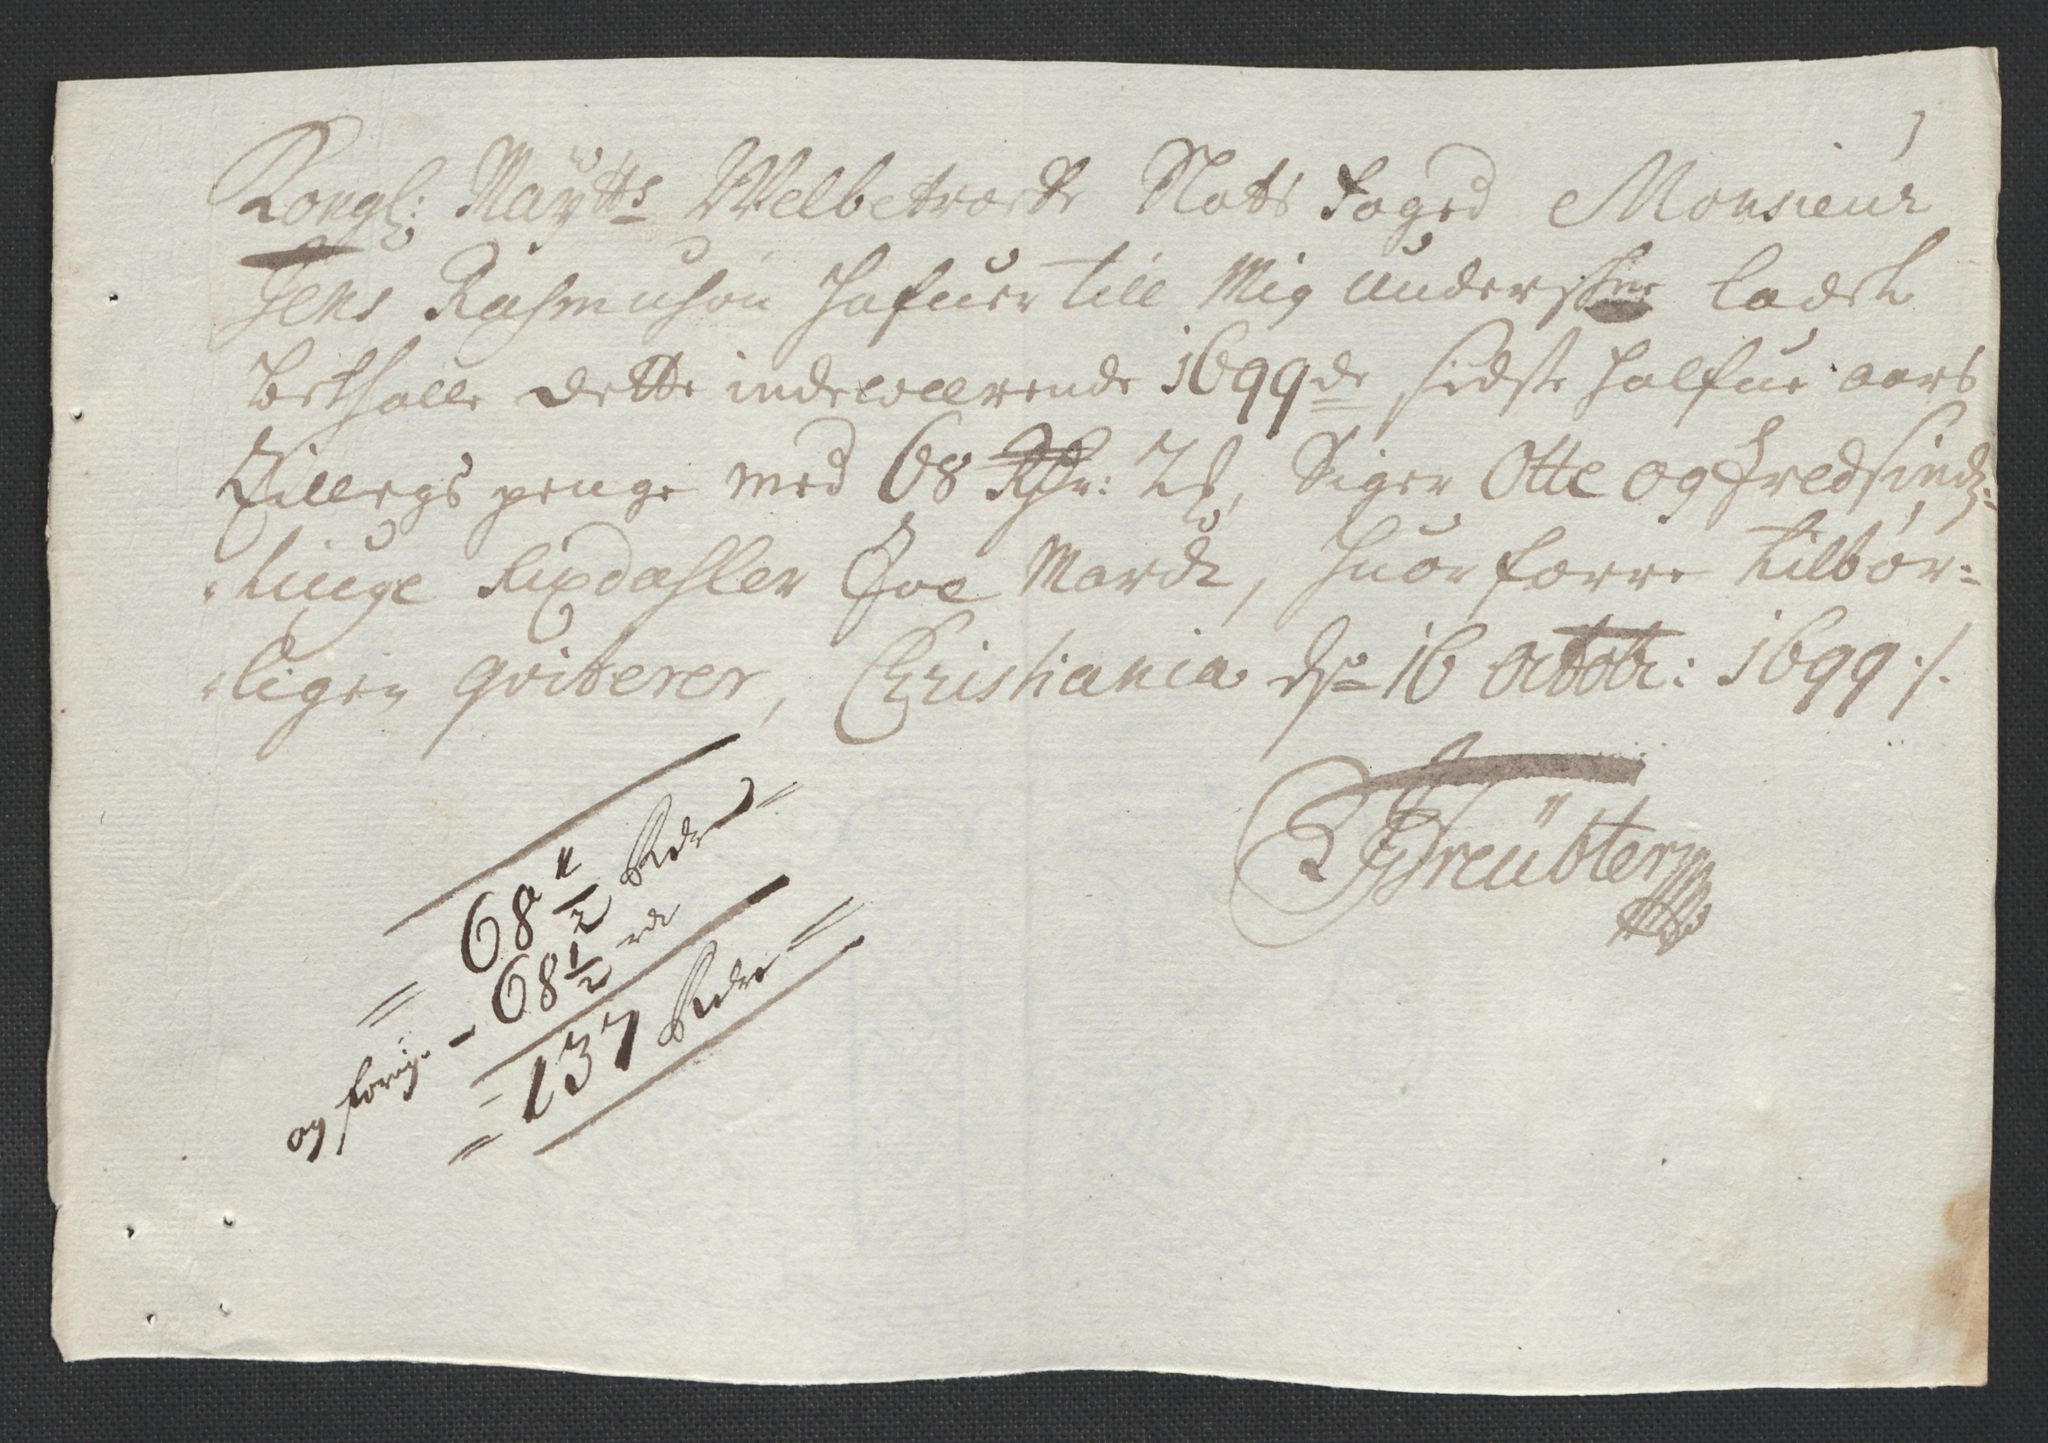 Kongl: Maÿtts Welbetroede Slots foged Monsieur
Jens Rasmuson hafuer till Mig Underskne ladet
bethalle dette indewærende 1699de sidste halfue aars
Tillegs penge med 68 Rdr: 2 Siger Otte og Tredsindz-
tiuge Rixdahler Toe Marck, huorforre tilbør-
ligen qviterer, Christiania dn 16 octobr: 1699 ./.
Treübter
68 1/2 Rdr
og forrige - 68 1/2 rdr
137 Rdr